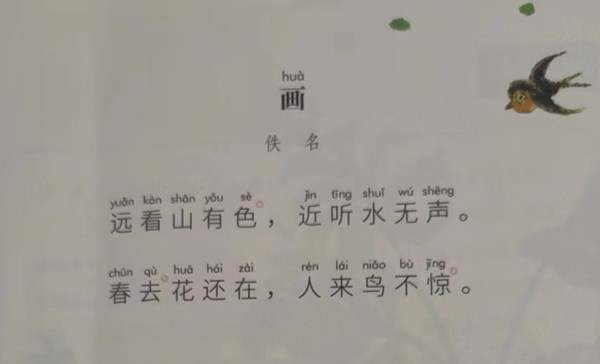 huà
画
佚 名
yuǎn kàn shān yǒu sè jìn tīng shuǐ wú shēng
远看山有色，近听水无声。
chūn qù huā hái zài rén lái niǎo bù jīng
春去花还在，人来鸟不惊。